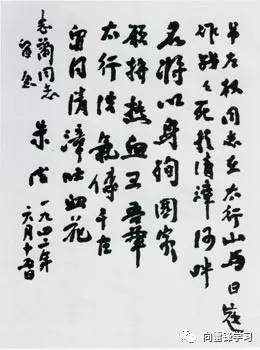 吊左权同志在太行山与日寇
作战々死於清漳河畔
名将以身殉國家
愿拼热血卫吾華
太行浩氣傳千古
留得清漳吐血花
志蘭同志
留念
朱德
一九四二年
六月十五日
向雷锋学习